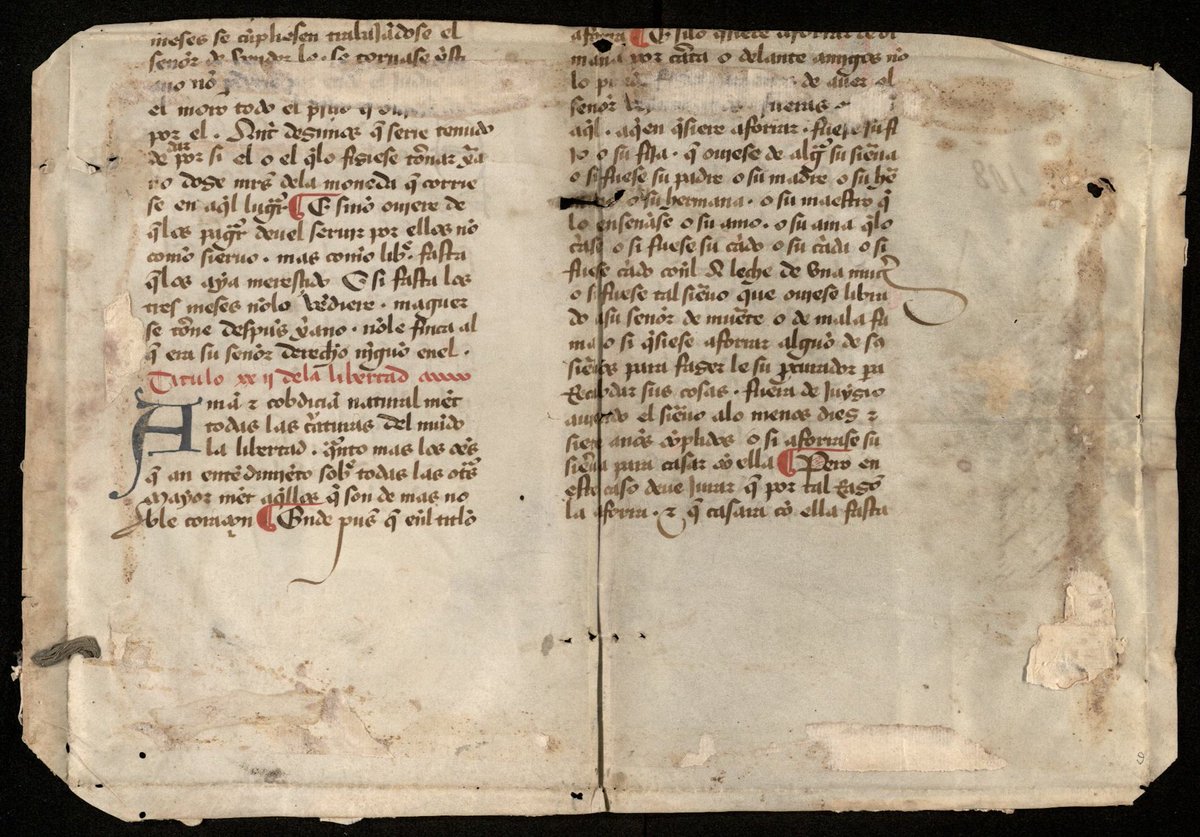 meses se cũpliesen trabajãdose el
señor de vender lo . se tornase xp̃sta
ano no
el moro todo el p̃cio q
por el . Ant̃ degunos q̃ serie tenudo
de dar por si el o el q̃lo fiziese tornar xp̃a
no doze mrs̃ dela moneda q̃ corrie
se en aq̃l lugar ¶ E sino ouiere de
q̃los pagar deuel seruir por ellos no
como sieruo . mas como libr̃ . fasta
q̃los aya merescido E si fasta los
tres meses nolo vẽdiere . maguer
se torne despues xp̃ano . nole finca al
q̃ era su señor derecho nĩguno enel .
Titulo xx ij dela libertad
Ama ⁊ cobdicia natural mẽt
todas las c̃aturas del mũdo
la libertad . quãto mas los oẽs
q̃ an entẽdimiẽto sobr̃ todas las otr̃s
Mayor mẽt aq̃llos q̃ son de mas no
ble coraçon ¶ Onde pues q̃ enl titlo
aforra ¶ E si lo quiere aforrar de ot
mana por carta o delante amigos no
lo de auer el
señor fueras
aq̃l . aquien q̃siere aforrar . fuese su fi
jo o su fija . q̃ ouiese de alguna su sierua
o si fuese su padre o su madre o su h̃e
o su hermana . o su maestro q̃
lo enseñase o su amo . o su ama q̃lo
criase o si fuese su criado o su criada o si
fuese criado conl de leche de vna muger
o si fuese tal sieruo que ouiese libra
do a su señor de muerte o de mala fa
ma o si q̃siese aforrar alguno de so
sieruos para fazer le su procurador pa
Recabdar sus cosas . fuera de juyzio
auiendo el sieruo alo menos diez ⁊
siete años cõplidos o si aforrase su
sierua para casar cõ ella ¶ Pero en
este caso deue jurar q̃ por tal Razon
la aforra . ⁊ q̃ casara cõ ella fasta
108
9